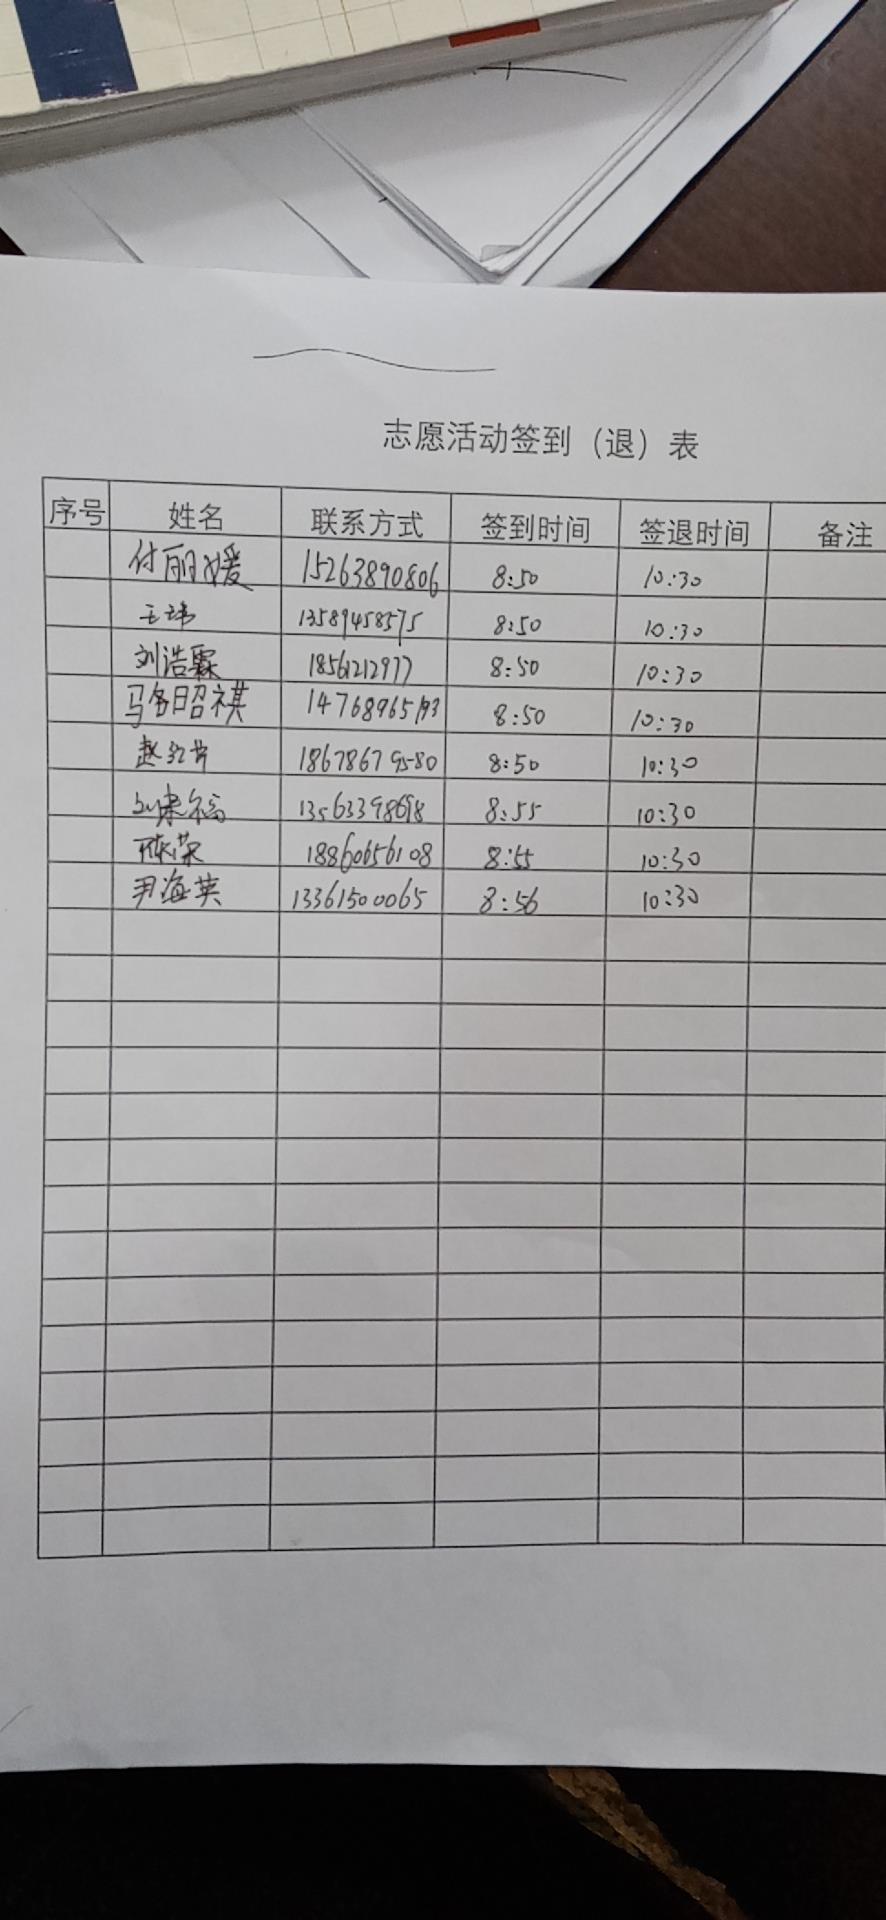 志愿活动签到（退）表
序号 姓名 联系方式 签到时间 签退时间 备注
付丽媛 15263890806 8:50 10:30
王玮 13589458575 8:50 10:30
刘浩霖 18561212977 8:50 10:30
马多昭祺 14768965193 8:50 10:30
赵红芳 18678679580 8:50 10:30
13563398698 8:55 10:30
陈荣 18860656108 8:55 10:30
尹海英 13361500065 8:56 10:30